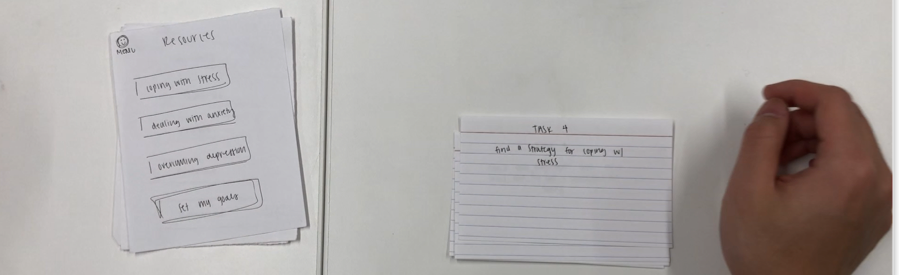 Resources
MENU
coping with stress
dealing with anxiety
overcoming depression
set my goals
TASK 4
find a strategy for coping w/
stress